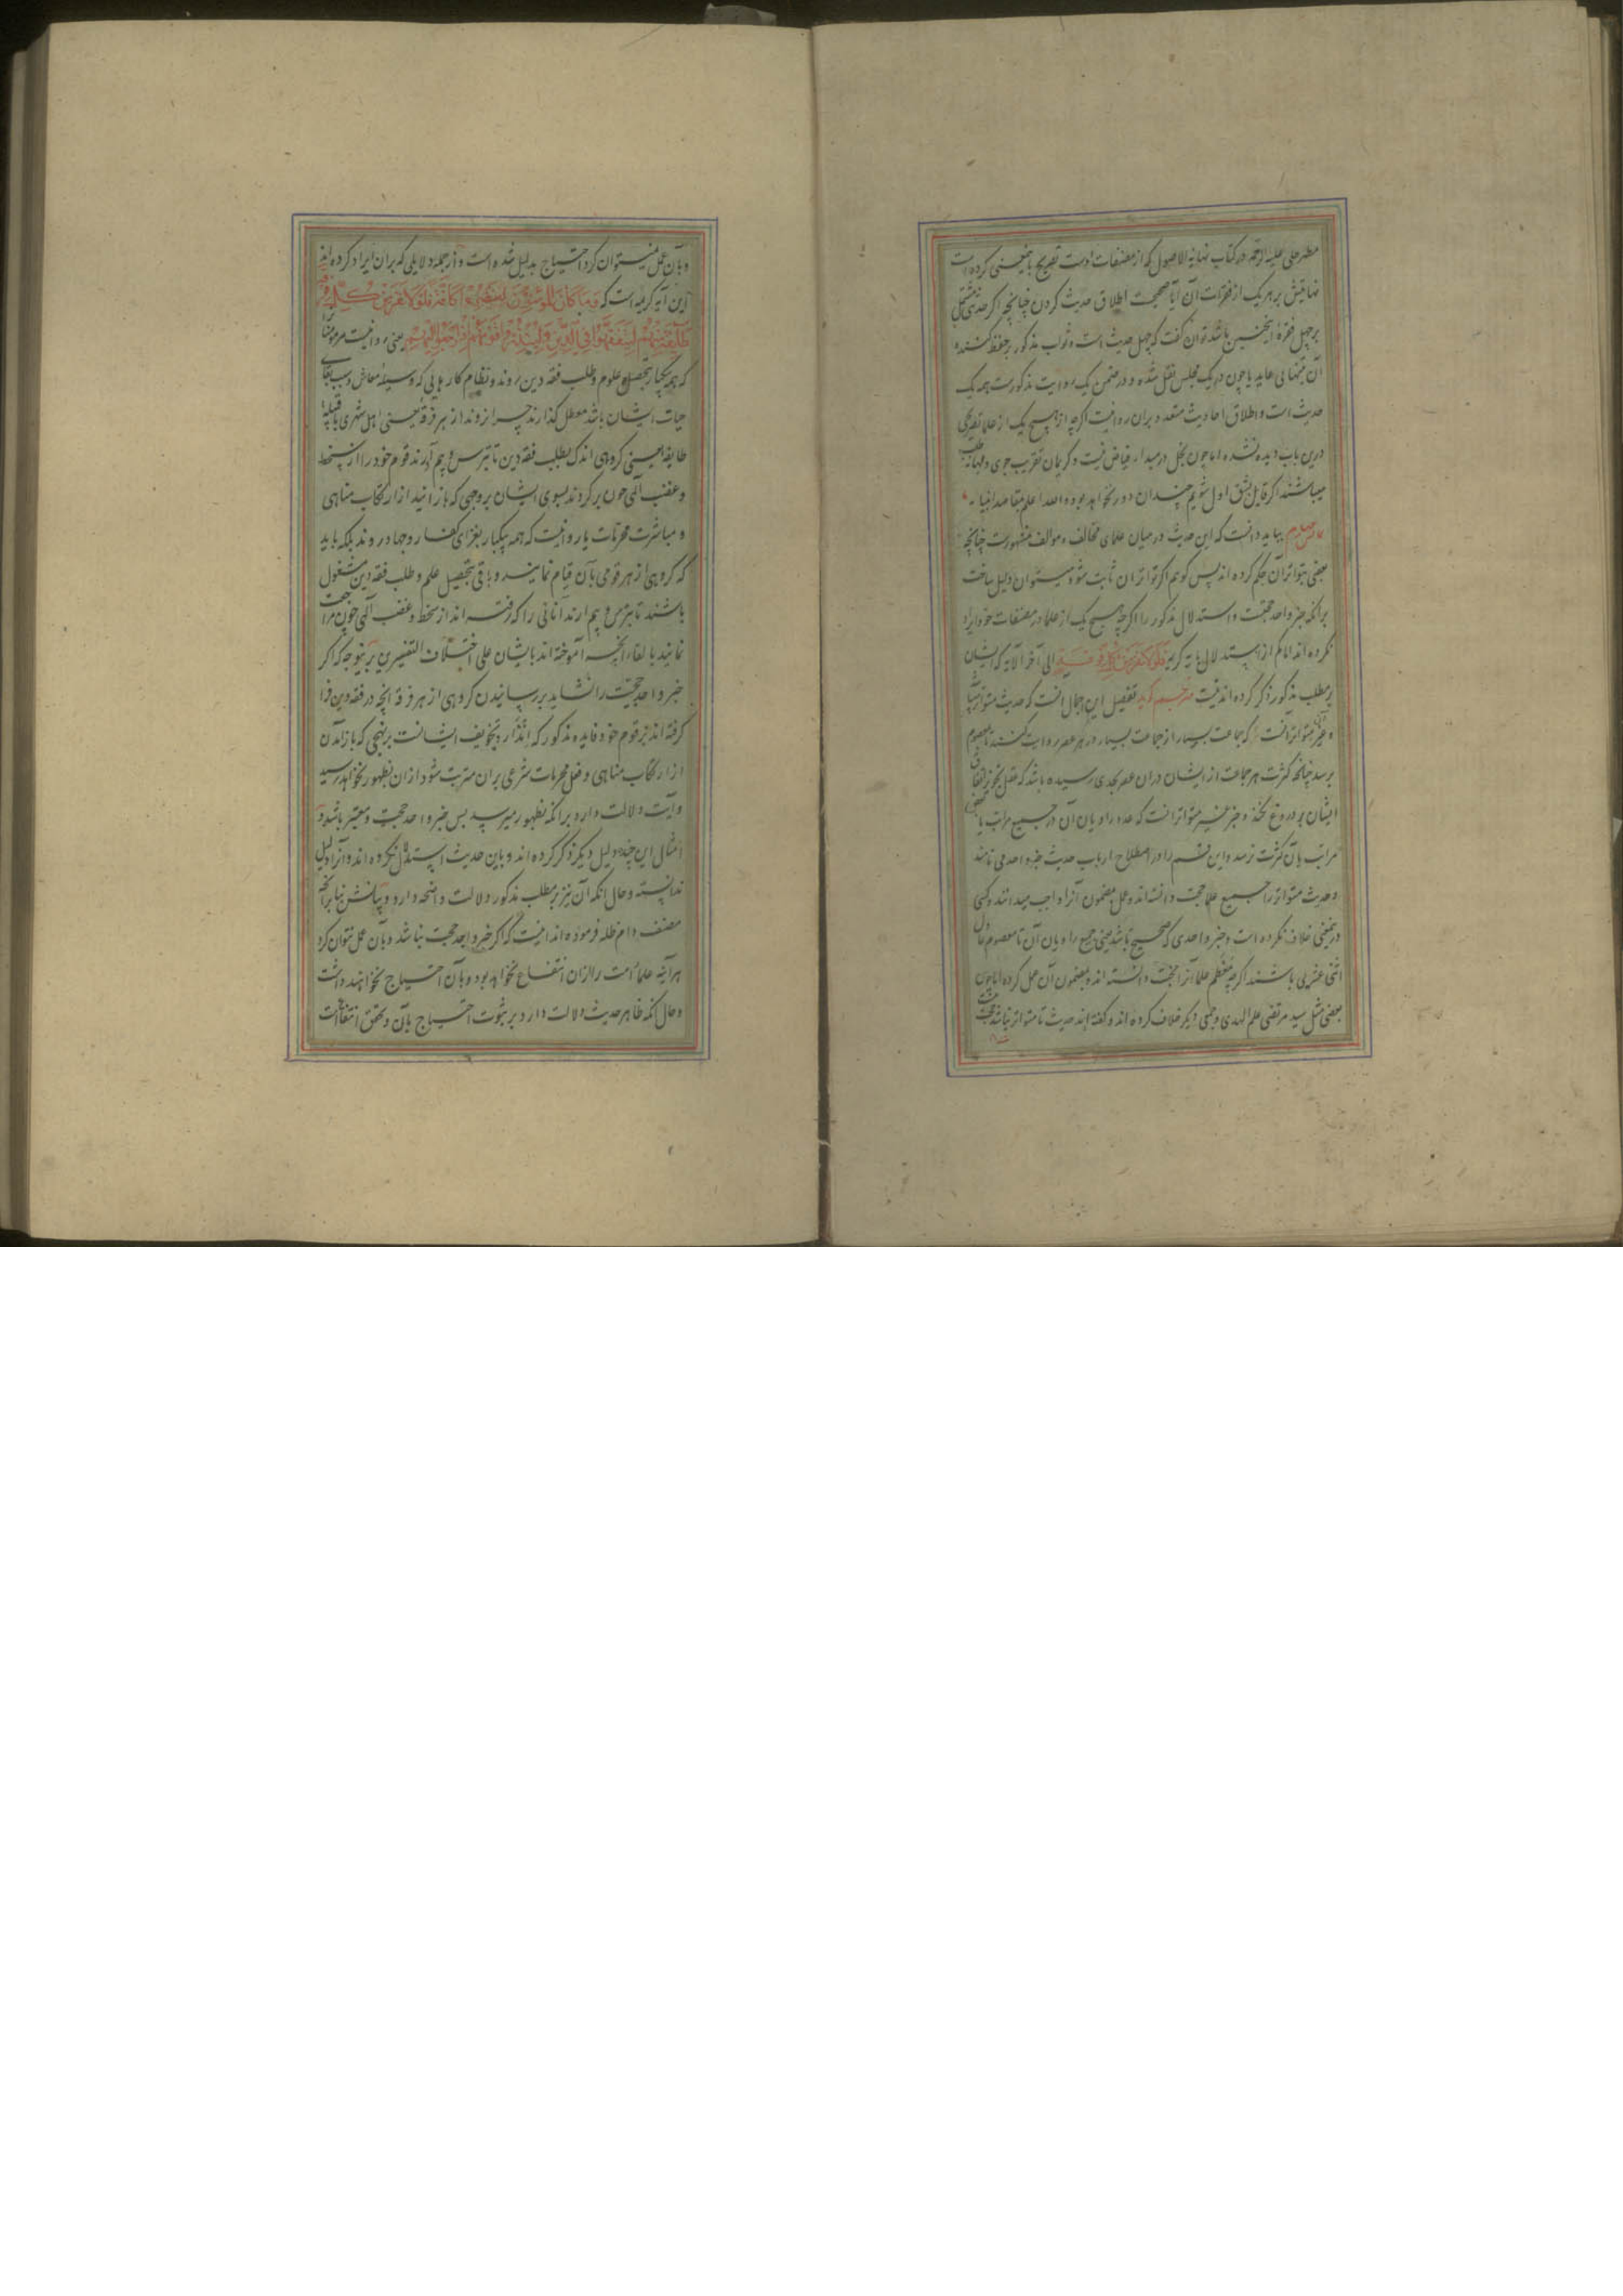 مطهر حلی علیه الرحمه در کتاب نهایة الاصول که از مصنفات اوست تصریح باینمعنی کرده است
نهایتش بر هر یک از فقرات آن آیا صحیحست اطلاق حدیث کردن چنانچه اگر حدیثی مشتمل
بر چهل فقرهٔ اینچنین باشد توان گفت که چهل حدیث است و ثواب مذکور بر حفظ کننده
آن عاید یا چون در یک مجلس نقل شده و در ضمن یک روایت مذکورست همه یک
حدیث است و اطلاق احادیث متعدد بران روا نیست اگرچه از هیچ یک از علما تصریحی
درین باب دیده نشده اما چون بخل در مبداء فیاض نیست و کریمان تقریب جوی و بهانه طلب
میباشند اگر قایل بشق اول شویم چندان دور نخواهد بود والله اعلم بمقاصد انبیاء
بباید دانست که این حدیث در میان علمای مخالف و موالف مشهورست چنانچه
بعضی بتواتر آن حکم کرده اند پس گویم اگر تواتر آن ثابت شود میتوان دلیل ساخت
برانکه خبر واحد حجتست و استدلال مذکور را اگرچه هیچ یک از علما در مصنفات خود ایراد
نکرده اند اما کم از استدلال بآیه کریمه فلولا نفر من کل فرقة الی آخر الآیه که ایشان
بر مطلب مذکور ذکر کرده اند نیست مترجم گوید تفصیل این اجمال آنست که حدیث متواتر
و خبر متواتر آنست که جماعت بسیار از جماعت بسیار در هر عصر روایت کنند تا بمعصوم
برسد چنانکه کثرت هر جماعت از ایشان دران عصر بحدی رسیده باشد که عقل تجویز اتفاق
ایشان بر دروغ نکند و خبر غیر متواتر آنست که عدد راویان آن در جمیع مراتب یا بعضی
مراتب بآن کثرت نرسد و این قسم را در اصطلاح ارباب حدیث خبر واحد می نامند
و حدیث متواتر را جمیع علما حجت دانسته اند و عمل بمضمون آنرا واجب میدانند و کسی
درینمعنی خلاف نکرده است و خبر واحدی که صحیح باشد یعنی جمیع راویان آن تا معصوم عادل
اثنی عشریی باشند اگرچه معظم علما آنرا حجت دانسته اند و بمضمون آن عمل کرده اما چون
بعضی مثل سید مرتضی علم الهدی و جمعی دیگر خلاف کرده اند و گفته اند حدیث تا متواتر نباشد حجت نیست
و بآن عمل نمیتوان کرد احتیاج بدلیل شده است و از جمله دلایلی که بران ایراد کرده اند
این آیه کریمه است که وَمَا كَانَ الْمُؤْمِنُونَ لِيَنْفِرُوا كَافَّةً فَلَوْلَا نَفَرَ مِنْ كُلِّ فِرْقَةٍ
طَائِفَةٌ مِنْهُمْ لِيَتَفَقَّهُوا فِي الدِّينِ وَلِيُنْذِرُوا قَوْمَهُمْ إِذَا رَجَعُوا إِلَيْهِمْ یعنی روا نیست مر مومنانرا
که همه یکبار بتحصیل علوم و طلب فقه دین روند و نظام کارهایی که وسیلهٔ معاش و سبب بقای
حیات ایشان باشد معطل گذارند چرا نروند از هر فرقه یعنی اهل شهری یا قبیلهٔ
طایفهٔ یعنی گروهی اندک بطلب فقه دین تا بترس و بیم آرند قوم خود را از سخط
و غضب الهی چون برگردند بسوی ایشان بروجهی که باز آیند از ارتکاب مناهی
و مباشرت محرمات یا روا نیست که همه یکبار بغزای کفار و جهاد روند بلکه باید
که گروهی از هر قومی بآن قیام نمایند و باقی بتحصیل علم و طلب فقه دین مشغول
باشند تا بترس و بیم آرند آنانی را که رفته اند از سخط و غضب الهی چون مراجعت
نمایند بالقاء آنچه آموخته اند بایشان علی اختلاف التفسیرین بر اینوجه که اگر
خبر واحد حجیت را نشاید بر رسانیدن گروهی از هر فرقه آنچه در فقه دین فرا
گرفته اند بر قوم خود فایده مذکور که انذار و تخویف ایشانست بر نهجی که باز آمدن
از ارتکاب مناهی و فعل محرمات شرعی بران مترتب شود ازان بظهور نخواهد رسید
و آیت دلالت دارد برانکه بظهور میرسد پس خبر واحد حجت و معتبر باشد و
امثال این چند دلیل دیگر ذکر کرده اند و باین حدیث استدلال نکرده اند و آنرا دلیل
ندانسته و حال آنکه آن نیز بر مطلب مذکور دلالت واضحه دارد و بیانش بنابر آنچه
مصنف دام ظله فرموده اند اینست که اگر خبر واحد حجت نباشد و بآن عمل نتوان کرد
هر آینه علماء امت را ازان انتفاع نخواهد بود و بآن احتیاج نخواهند داشت
و حال آنکه ظاهر حدیث دلالت دارد بر ثبوت احتیاج بآن و تحقق انتفاع است